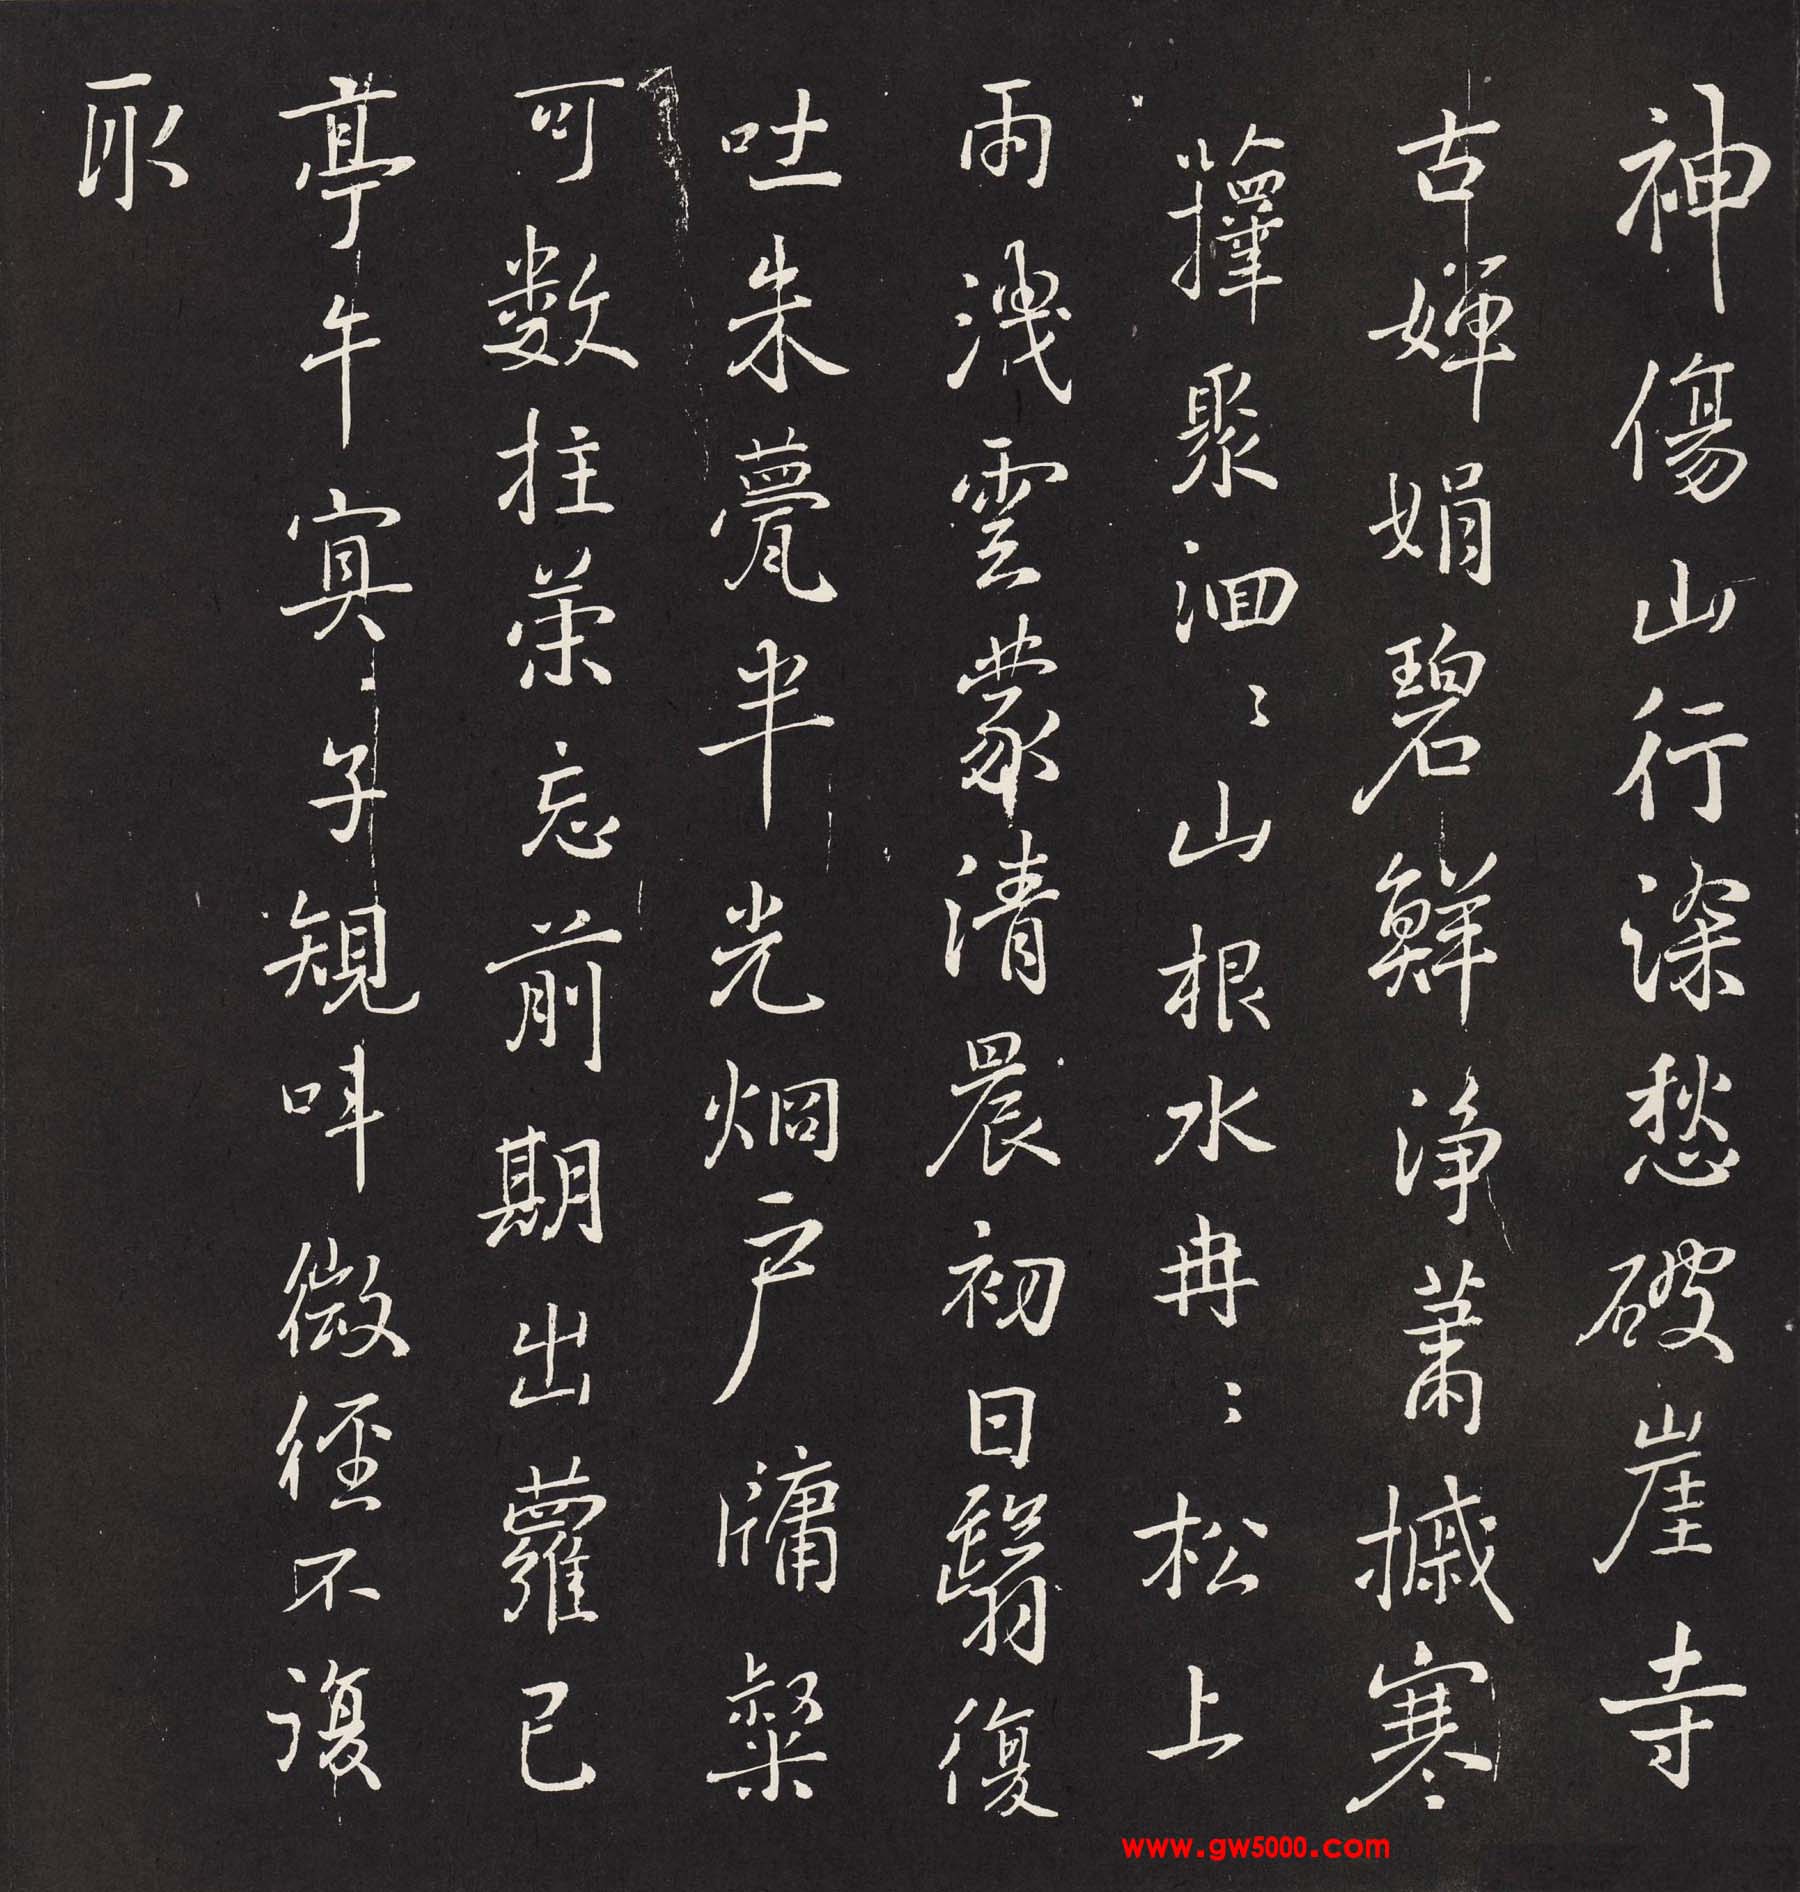 神傷山行深愁破崖寺
古嬋娟碧鮮淨蕭摵寒
籜聚洄〻山根水冉〻松上
雨洩雲蒙清晨初日翳復
吐朱甍半光烱戶牖粲
可数拄策忘前期出蘿已
亭午冥〻子規叫微徑不復
取
www.gw5000.com